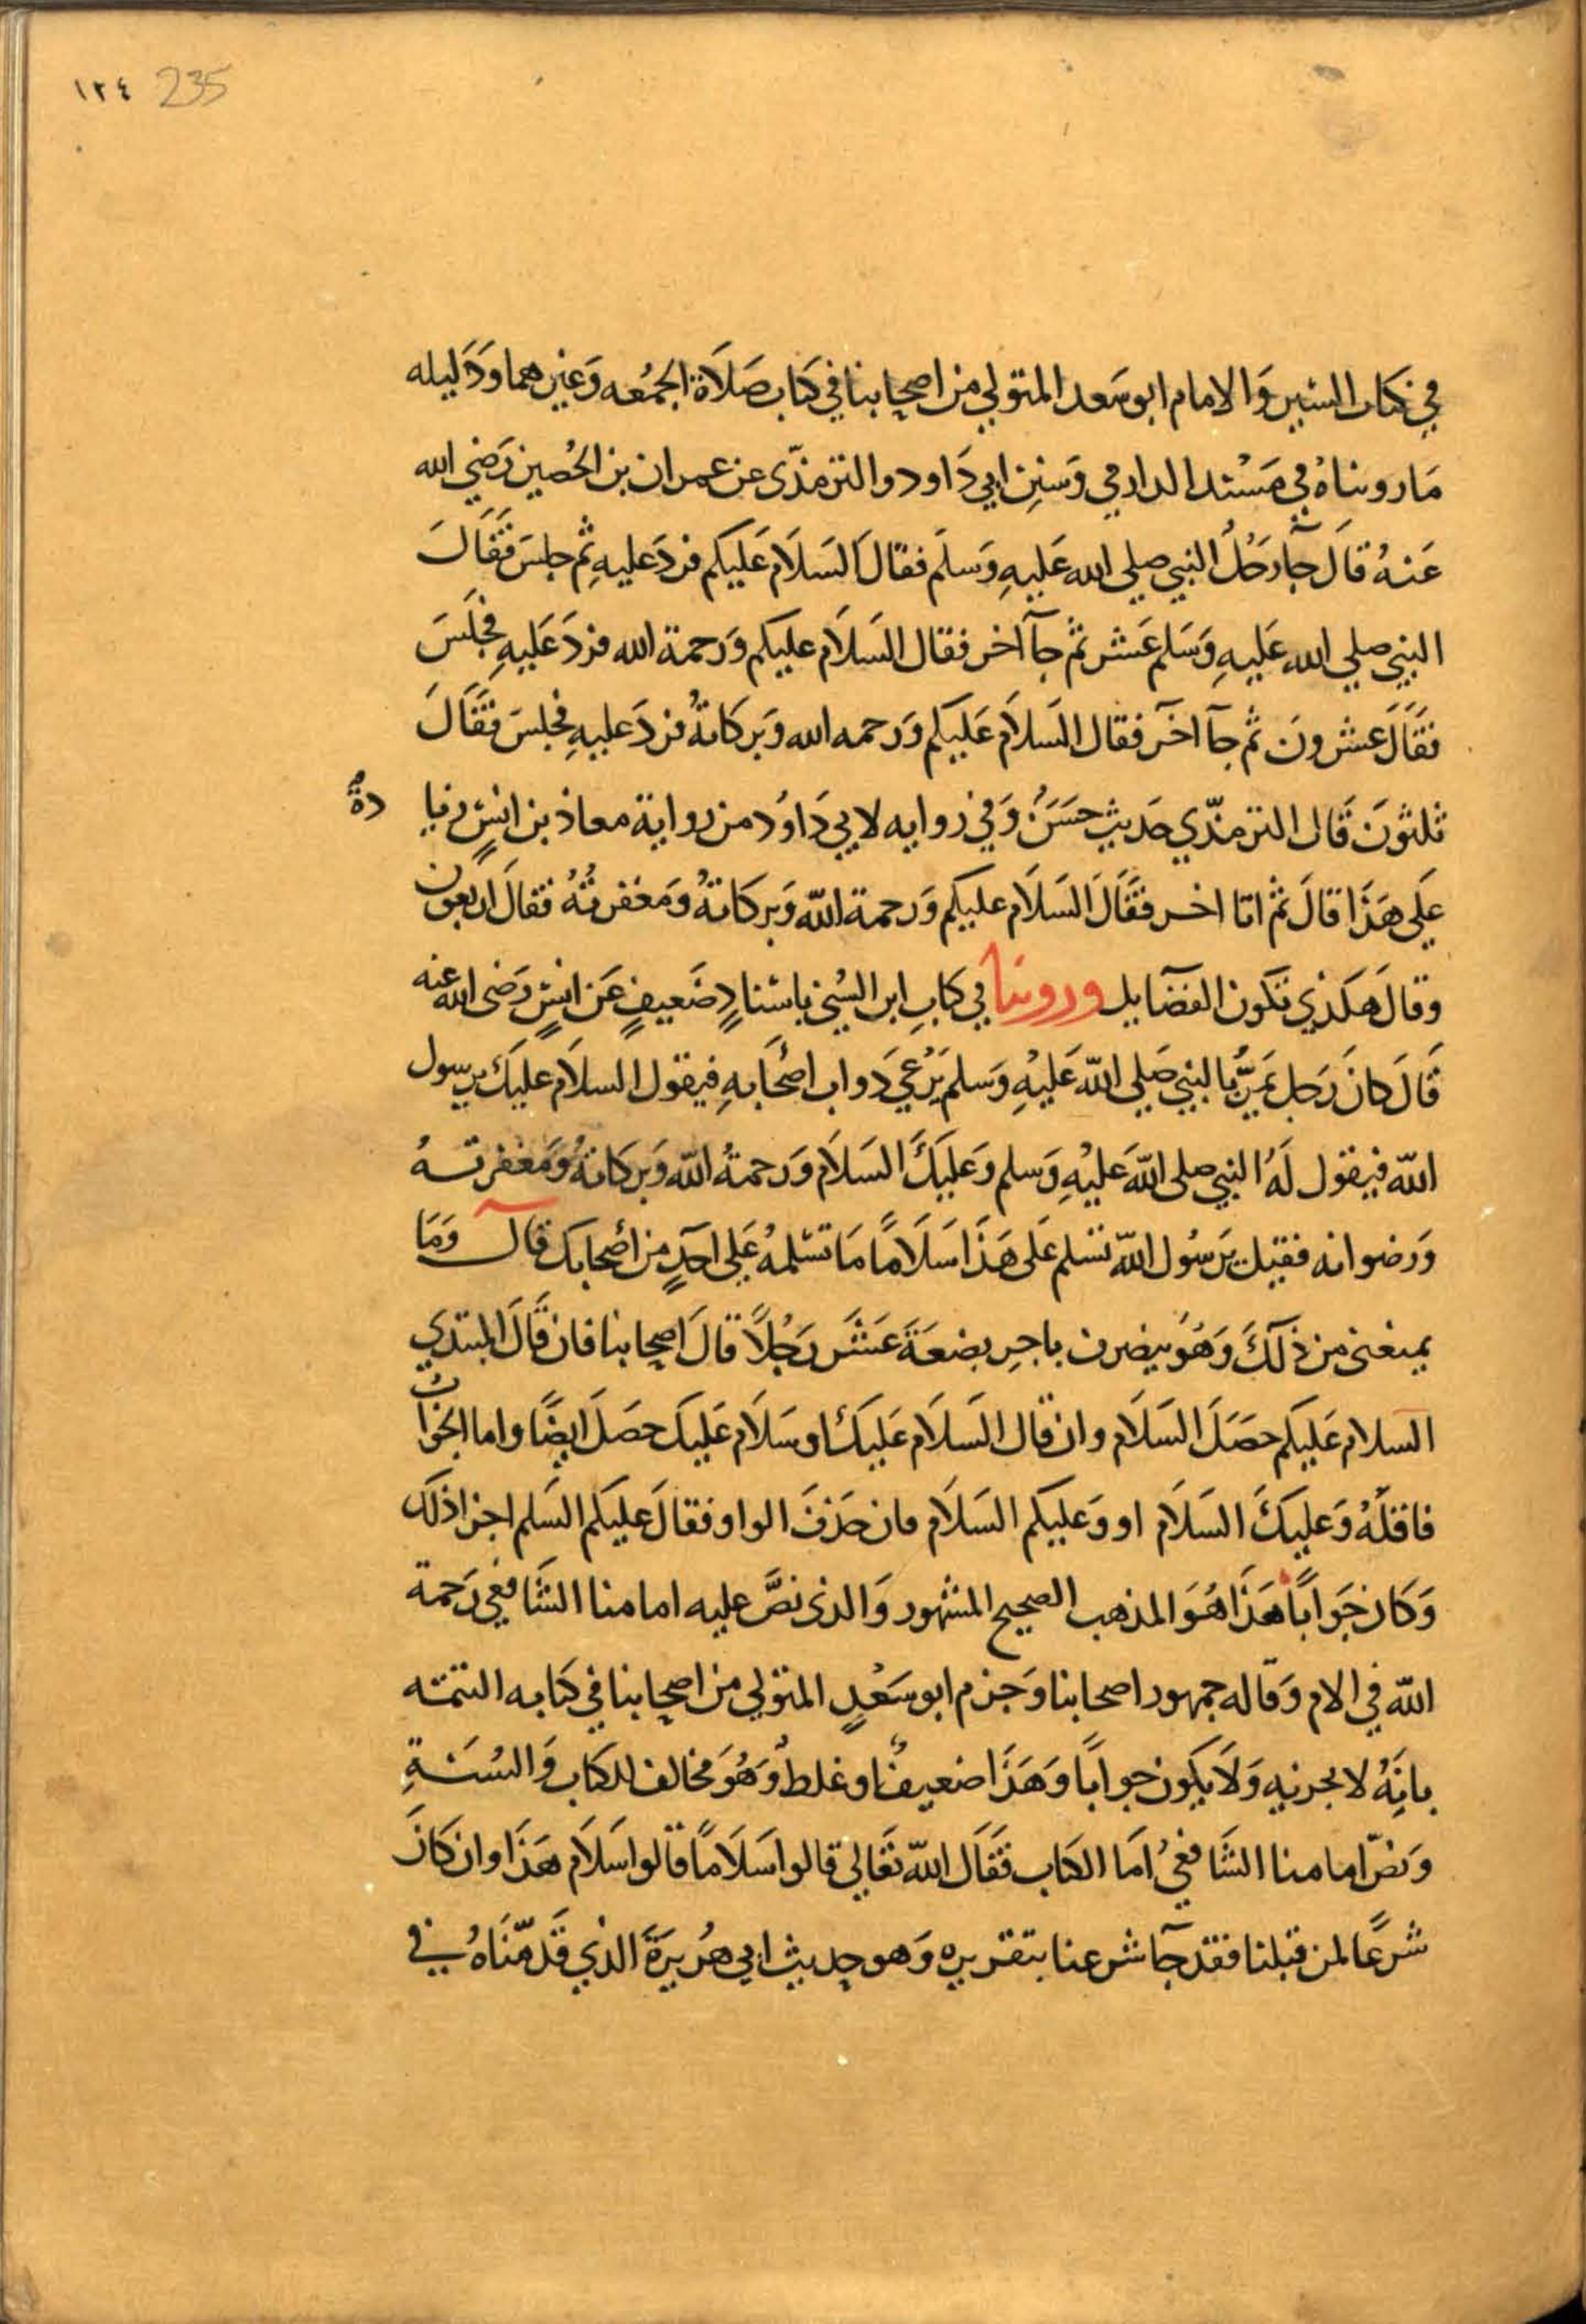 ١٢٤ 235
في كتاب السير وَالامام ابو سَعد المتولي من اصحابنا في كتاب صَلاَة الجمُعه وَغيرهما وَدَليله
مَا رويناهُ في مَسْند الدارمي وَسنن ابي دَاود والترمذّى عن عمران بن الحُصين رَضي الله
عَنهُ قالَ جآ رَجُلُ النبي صلى الله عَليهِ وَسلمَ فقالَ السَلاَم عَليكم فردَ عليهِ ثم جلسَ فَقَالَ
النبي صلى الله عَليهِ وَسَلم عَشر ثم جآ اخر فقال السَلاَم عليكم وَرحمة الله فردَ عَليهِ فجلَسَ
فقَالَ عشرونَ ثم جآ اخَر فقال السَلاَم عَليكم وَرحمه الله وَبركاتهُ فردَ عليهِ فجلسَ فقَالَ
ثلثونَ قَال الترمذّي حَديث حسَنُ وَفي روايه لابي دَاوُد من رواية معاذ بن انسٍ زيا دةٌ
عَلى هَذَا قالَ ثم اتا اخر فقَالَ السَلاَم عليكم وَرحمة اللّه وَبركاتهُ وَمَغفرتُهُ فقالَ اربعون
وقالَ هكذي تكون الفضَآيل وروينا في كتابِ ابن السُني باسنادٍ ضَعيفٍ عَن انسٍ رَضى الله عنه
قَالَ كانَ رَجل يمَرُّ بالنبي صَلى اللّه عَليْهِ وَسلم يَرْعي دَواب اصْحَابهِ فيقول السلاَم عليكَ يرسول
اللّه فيقول لَهُ النبي صلى اللّه عَليْهِ وَسلم وَعَليكَ السَلاَم وَرحمةُ اللّه وَبركاتهُ وَمَغفرتهُ
وَرضوانه فقيل يرَسُول اللّه تسلم عَلى هَذَا سَلاَمًا مَا تسَلمهُ عَلى احَدٍ من أصْحابكَ قالَ وَمَا
يمنعنى من ذلكَ وَهُو ينصرف باجرِ بضعَةَ عَشَر رَجُلاً قالَ اصحابنا فان قَالَ المبتدي
السلام عَليكم حصَلَ السَلاَم وان قال السَلاَم عَليكَ او سَلاَم عَليكَ حصَلَ ايضًا واما الجواب
فاقلَّهُ وَعليكَ السَلاَم او وَعَليكم السَلاَم فان حَذفَ الواو فقالَ عليكم السَلم اجزا ذلكَ
وَكان جَوابًا هَذَا هُوَ المذهب الصحيح المشهور وَالذى نصَّ عليه امامنا الشَافعي رَحمة
اللّه في الام وَقاله جمهور اصحابنا وَجزم ابو سَعْدٍ المتولي من اصحابنا في كتابه التتمه
بانَهُ لا يجزيه وَلاَ يكون جوابًا وَهَذَا ضعيفٌ او غلطُ وَهُوَ مخالف للكتاب وَالسُنةِ
وَنصّ امامنا الشَافعيُ امَا الكتاب فقَال اللّه تعَالي قالوا سَلاَمًا قالوا سَلاَم هَذَا وان كانَ
شرعًا لمن قبلنا فقد جآ شرعنا بتقريره وَهو حديث ابي هُريرَةَ الذي قدمّنَاهُ في